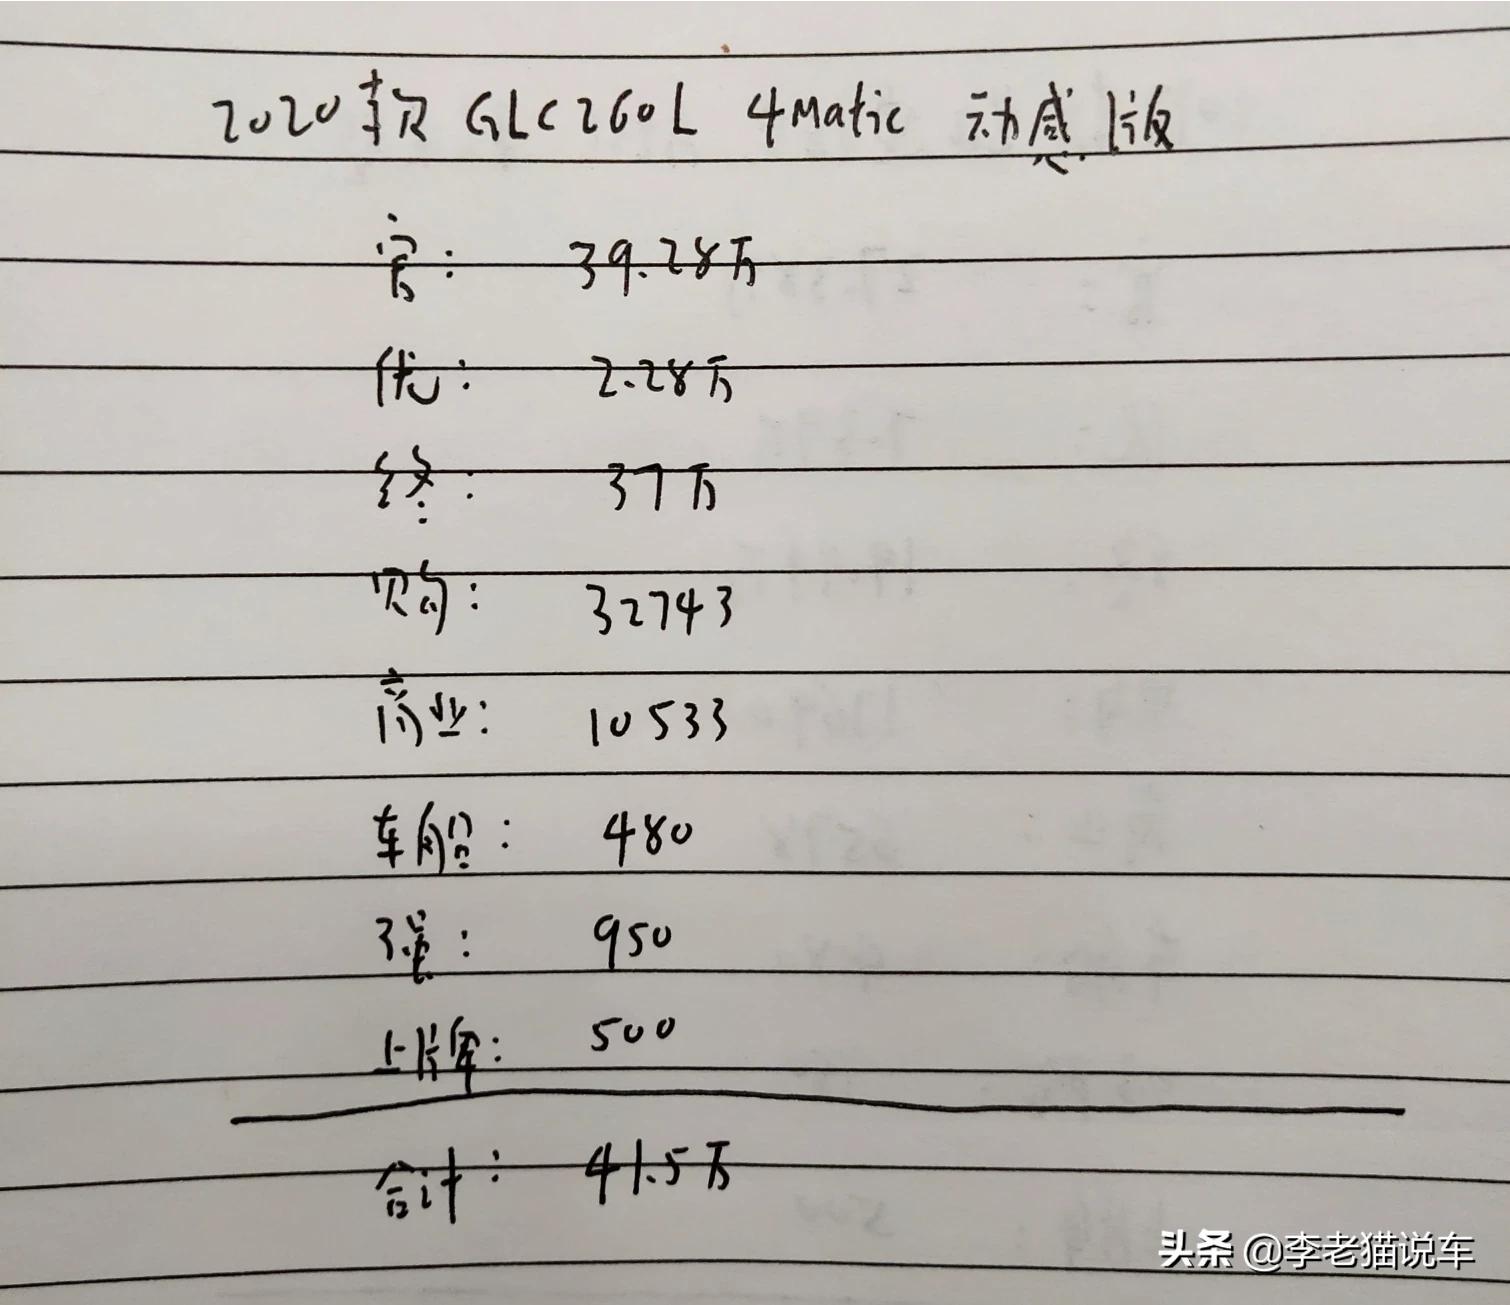 2020款 GLC260L 4Matic 动感版
官: 39.28万
优: 2.28万
终: 37万
购: 32743
商业: 10533
车船: 480
强: 950
上牌: 500
合计: 41.5万
头条 @李老猫说车